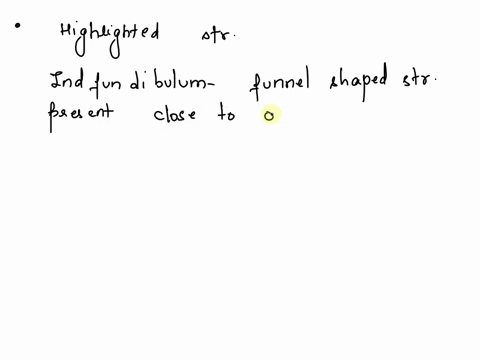 • Highlighted str.
Indfundibulum- funnel shaped str.
present close to o